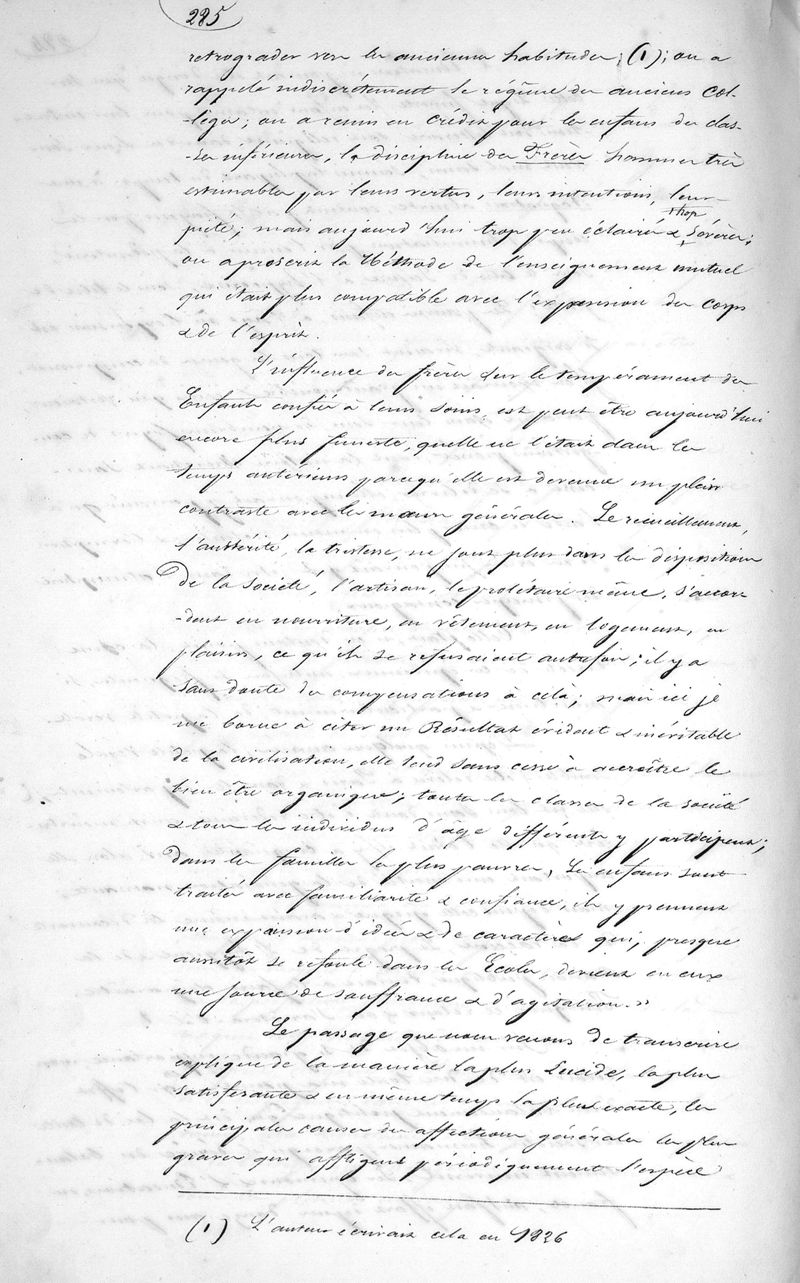 285
retrograder vers les anciennes habitudes; (1); on a
rappelé indiscrétement le régime des anciens col-
-leges; on a remis en crédit pour les enfans des clas-
-ses inférieures, la discipline des Frères hommes très
estimables par leurs vertus, leurs intentions, leur
piété; mais aujourd'hui trop peu éclairés & trop sévères;
on a proscrit la Méthode de l'enseignement mutuel
qui était plus compatible avec l'expansion du corps
& de l'esprit.
L'influence des frères sur le tempérament des
Enfants confiés à leurs soins, est peut être aujourd'hui
encore plus funeste, quelle ne l'était dans les
temps antérieurs parcequ'elle est devenue un plein
contraste avec les mœurs générales. Le recueillement,
l'austérité, la tristesse, ne sont plus dans les dispositions
de la société, l'artisan, le prolétaire même, s'accor-
-dent en nourriture, en vêtement, en logement, en
plaisirs, ce qu'ils se refusaient autrefois; il y a
sans doute des compensations à celà; mais ici je
me borne à citer un Résultat évident & inévitable
de la civilisation, elle tend sans cesse à accroître le
bien être organique; toutes les classes de la société
& tous les individus d'âge différents y participent;
dans les familles les plus pauvres, les enfans sont
traités avec familiarité & confiance, ils y prennent
une expansion d'idées & de caractères qui, presque
aussitôt se refoule dans les Ecoles, devient en eux
une source de souffrance & d'agitation."
Le passage que nous venons de transcrire
explique de la manière la plus Lucide, la plus
satisfesante & en même temps la plus exacte, les
principales causes des affections générales les plus
graves qui affligent périodiquement l'espèce
(1) L'auteur écrivait cela en 1826